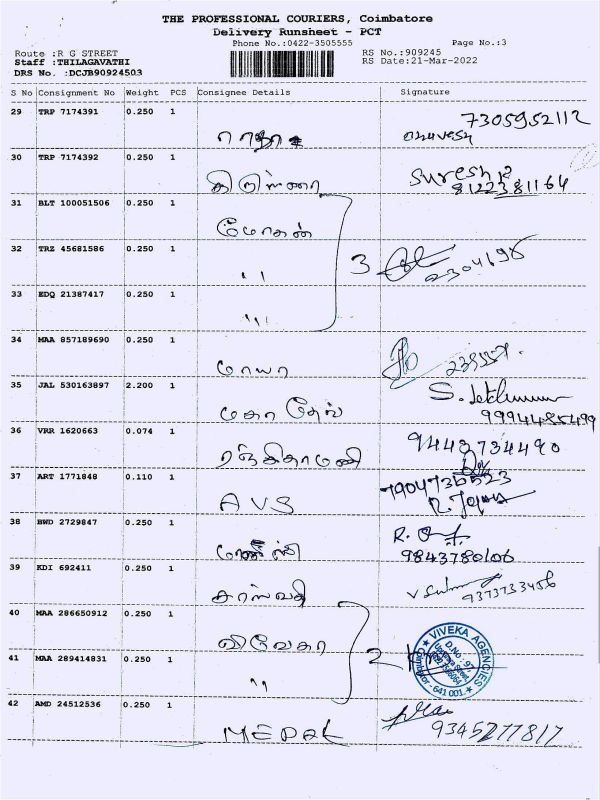 THE PROFESSIONAL COURIERS, Coimbatore
Delivery Runsheet - PCT
Phone No.:0422-3505555
Page No.:3
Route :R G STREET
Staff :THILAGAVATHI
DRS No. :DCJB90924503
RS No.:909245
RS Date:21-Mar-2022
S No Consignment No Weight PCS Consignee Details Signature
29 TRP 7174391 0.250 1 7305952112
30 TRP 7174392 0.250 1 Suresh 8122381164
31 BLT 100051506 0.250 1 மோகன்
32 TRZ 45681586 0.250 1 " 3
33 EDQ 21387417 0.250 1 "
34 MAA 857189690 0.250 1 மாயா
35 JAL 530163897 2.200 1 மகாதேவ் 9994485499
36 VRR 1620663 0.074 1 9443734490
37 ART 1771848 0.110 1 AVS
38 BWD 2729847 0.250 1 9843780106
39 KDI 692411 0.250 1 9373733456
40 MAA 286650912 0.250 1 விவேகா
41 MAA 289414831 0.250 1 " 2
VIVEKA AGENCIES
D.No : 97
641 001.
42 AMD 24512536 0.250 1 9345277817